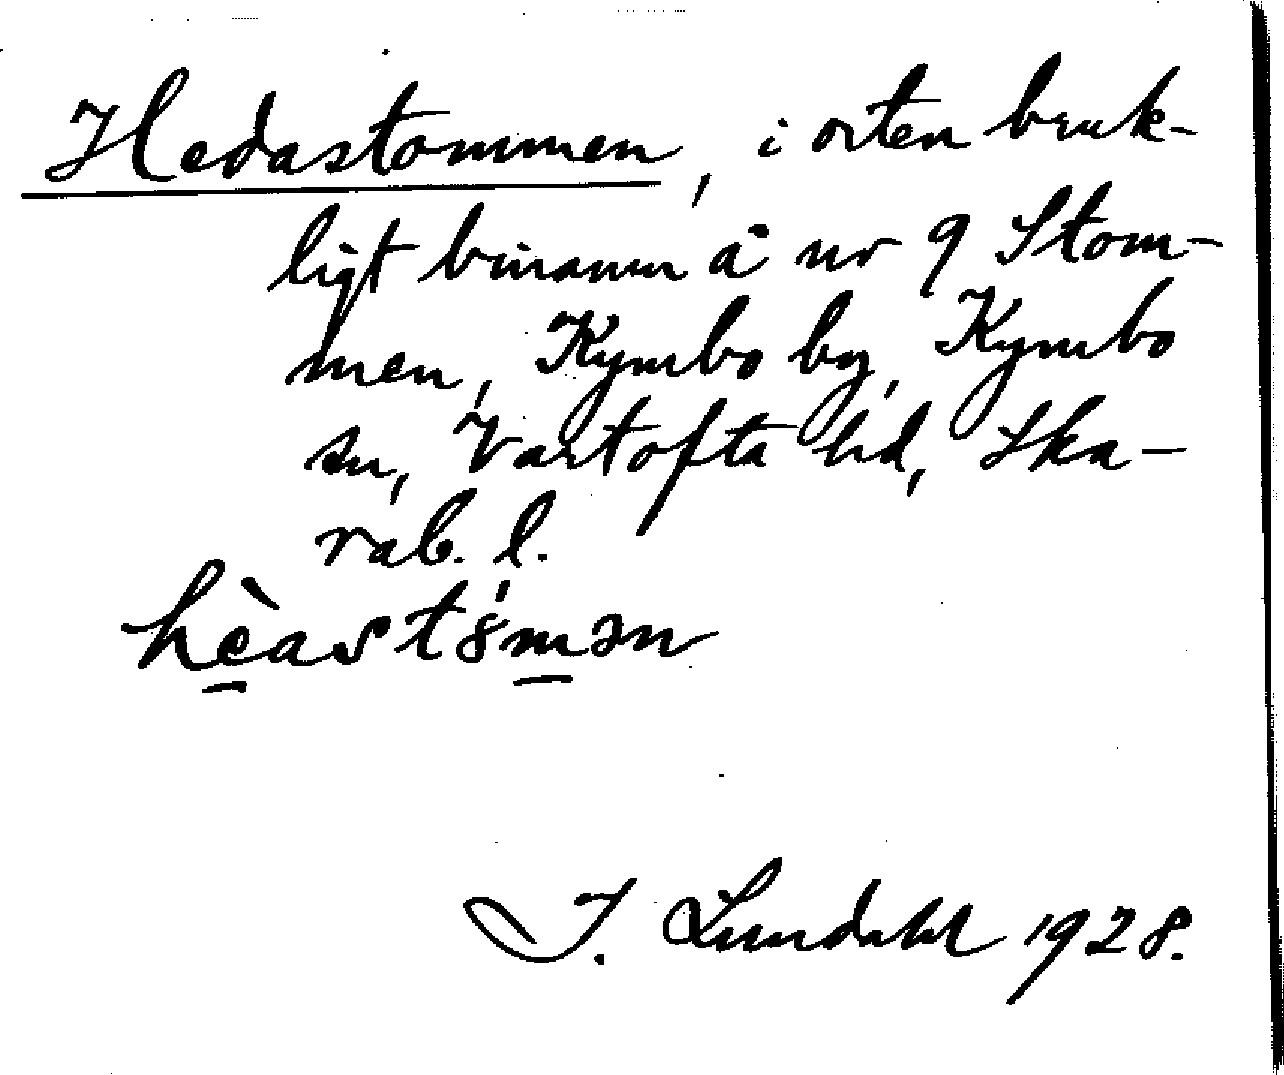 Hedastommen, i orten bruk-
ligt binamn å nr 9 Stom-
men, Kymbo by, Kymbo
sn, Vartofta hd, Ska-
rab. l.
hèastω̇mən
I. Lundahl 1928.